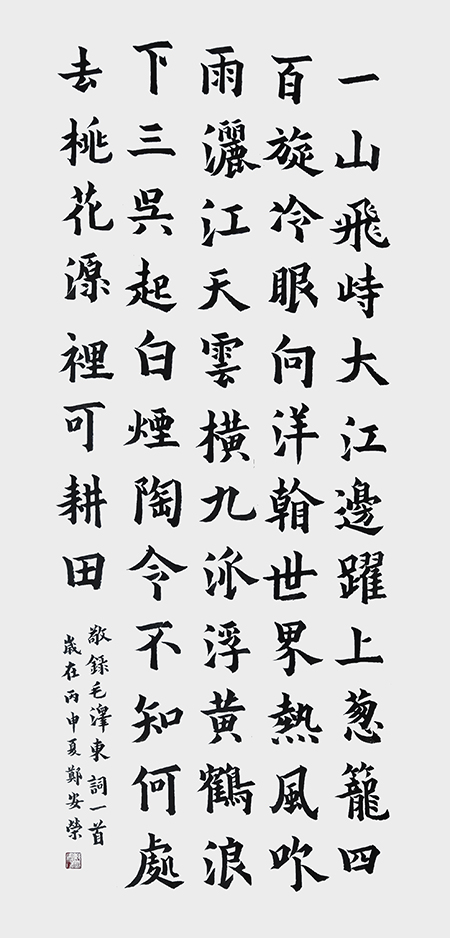 一山飛峙大江邊躍上葱籠四
百旋冷眼向洋翰世界熱風吹
雨灑江天雲橫九派浮黃鶴浪
下三吳起白煙陶令不知何處
去桃花源裡可耕田
敬錄毛澤東詞一首
歲在丙申夏鄭安榮